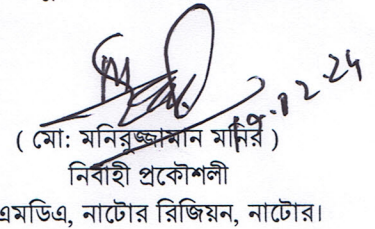 19.12.24
( মো: মনিরুজ্জামান মনির )
নির্বাহী প্রকৌশলী
এমডিএ, নাটোর রিজিয়ন, নাটোর।